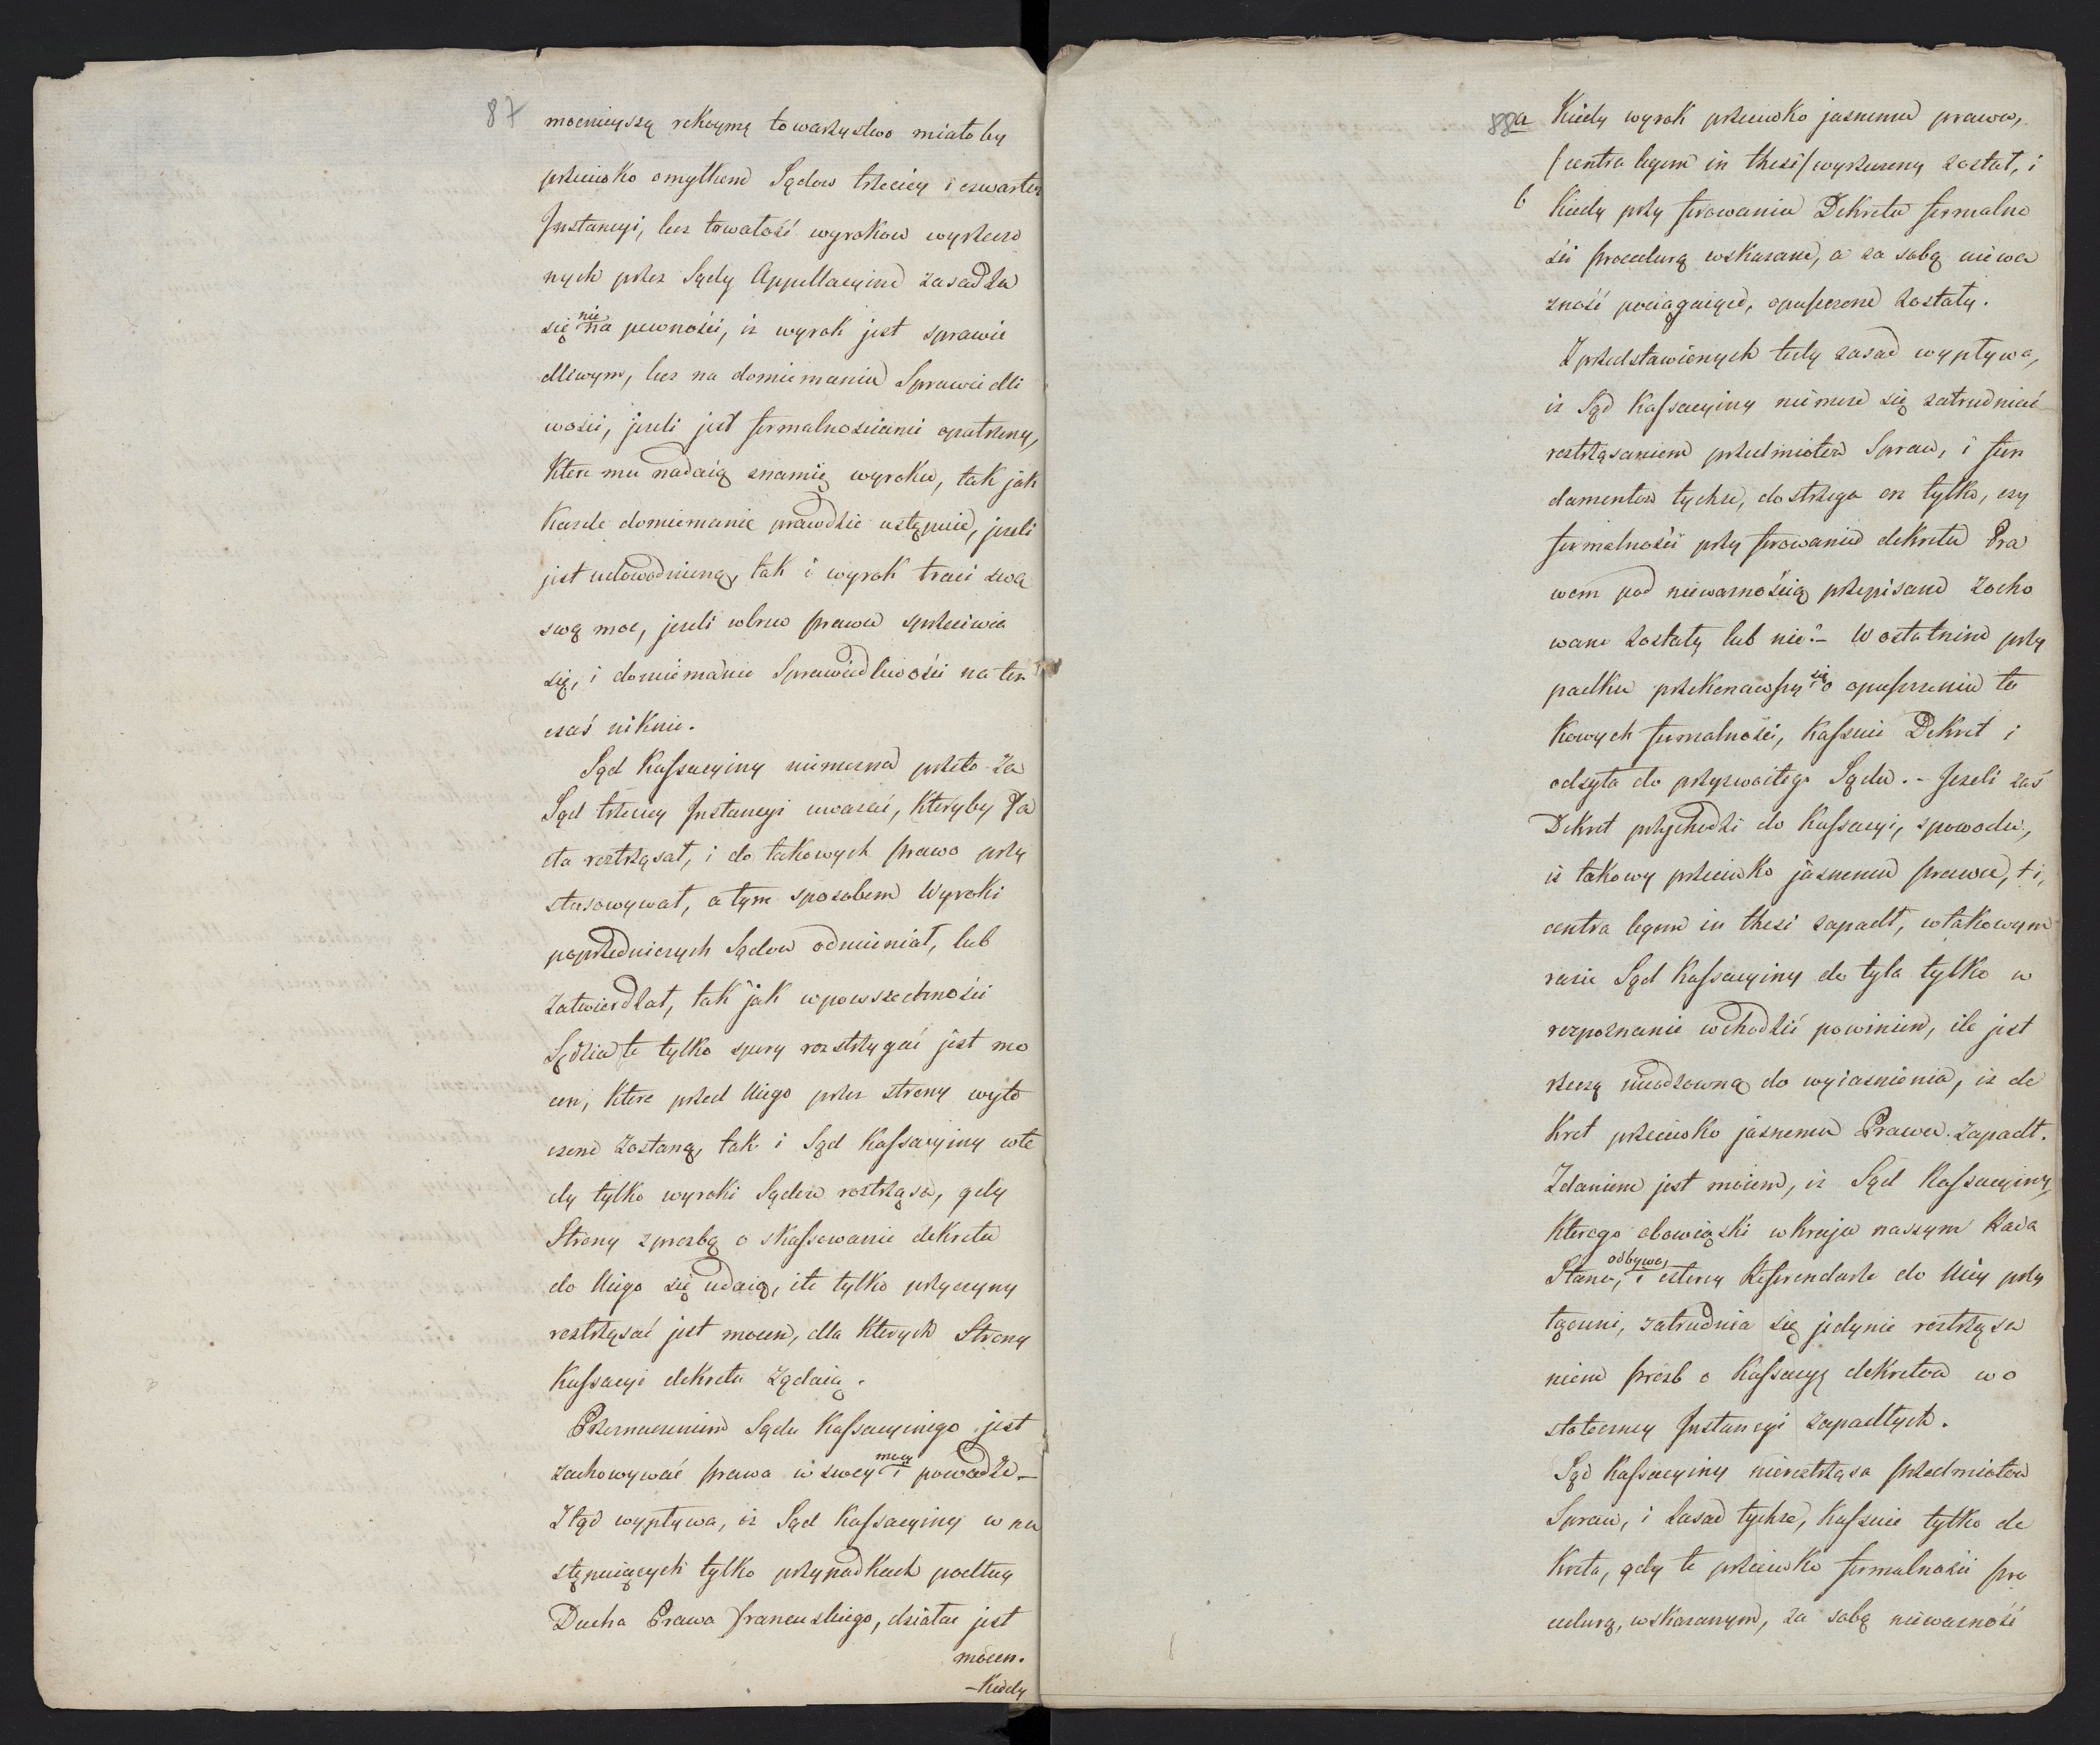 87
mocnieyszą rekoymę towarzystwo miałoby
przeciwko omyłkom Sądow trzeciey i czwartey
Instancyi, lecz trwałość wyrokow wyrzeczo
nych przez Sądy Appellacyine zasadza
się nie na pewności, iz wyrok jest sprawie
dliwym, lecz na domiemaniu Sprawiedli
wości, jezeli jest formalnosciami opatrzony,
Ktore mu nadaią znamię wyroku, tak jak
Kazde domiemanie prawdzie ustępuie, jezeli
jest udowodnioną, tak i wyrok traci swą
swą moc, jezeli wbrew prawu sprzeciwia
się, i domiemanie Sprawiedliwości na ten
czas niknie.
Sąd Kassacyiny niemozna przeto za
Sąd trzeciey Instancyi uwazać, Ktoryby Fa
cta roztrząsał, i do takowych prawo przy
stosowywał, a tym sposobem Wyroki
poprzedniczych Sądow odmieniał, lub
zatwierdzał, tak jak w powszechności
Sędzia te tylko spory rozstrzygać jest mo
cen, Ktore przed Niego przez strony wyto
czone zostaną, tak i Sąd Kassacyiny wte
dy tylko wyroki Sądow roztrząsa, gdy
Strony z prozbą o skassowanie dekretu
do Niego się udaią, ile tylko przyczyny
roztrząsać jest mocen, dla Ktorych Strony
Kassacyi dekretu ządaią.
Przeznaczeniem Sądu Kassacyinego jest
zachowywać prawa w swey mocy i powadze –
Ztąd wypływa, iz Sąd Kassacyiny w na
stępuiących tylko przypadkach podług
Ducha Prawa francuskiego, działac jest
mocen.
– Kiedy
88
a Kiedy wyrok przeciwko jasnemu prawu,
/contra legem in thesi/ wyrzeczony został, i
b Kiedy przy ferowaniu Dekretu formalno
ści procedurą wskazane, a za sobą niewa
zność pociągaiące, opuszczone zostały.
Z przedstawionych tedy zasad wypływa,
iz Sąd Kassacyiny niemoze się zatrudniać
roztrząsaniem przedmiotow Spraw, i fun
damentow tychze, dostrzega on tylko, czy
formalności przy ferowaniu dekretu Pra
wem pod niewaznością przepisane zacho
wane zostały lub nie? – W ostatnim przy
padku przekonawszy się o opuszczeniu ta
kowych formalności, Kassuie Dekret i
odsyła do przyzwoitego Sądu. – Jezeli zaś
Dekret przychodzi do Kassacyi, z powodu,
iz takowy przeciwko jasnemu prawu, t i,
contra legem in thesi zapadł, w takowym
razie Sąd Kassacyiny do tyla tylko w
rozpoznanie wchodzić powinien, ile jest
rzeczą nieodzowną do wyiasnienia, iz de
kret przeciwko jasnemu Prawu zapadł.
Zdaniem jest moiem, iz Sąd Kassacyiny,
Ktorego obowiązki w Kraju naszym Rada
Stanu, odbywa, i czterey Referendarze do Niey przy
łączeni, zatrudnia się jedynie roztrząsa
niem prozb o Kassacyę dekretow w o
statoczney Instancyi zapadłych.
Sąd Kassacyiny nieroztrząsa przedmiotow
Spraw, i Zasad tychze, Kassuie tylko de
kreta, gdy te przeciwko formalności pro
cedurą, wskazanym, za sobą niewazność